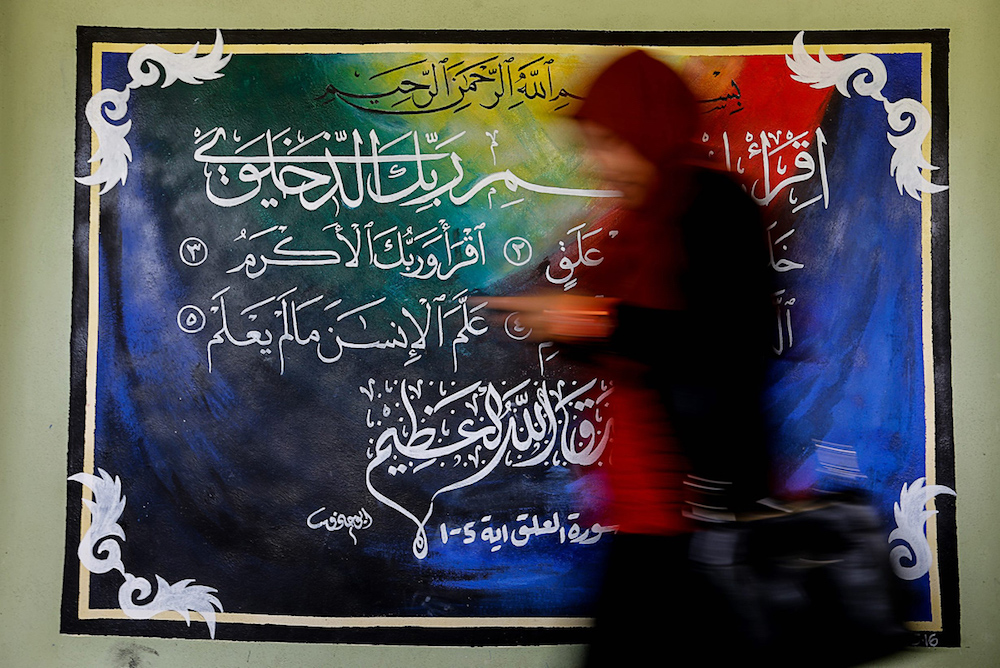 بِسْمِ ٱللَّهِ ٱلرَّحْمَٰنِ ٱلرَّحِيمِ
اقْرَأْ سْمِ رَبِّكَ الَّذِي خَلَقَ
عَلَقٍ ٢ ٱقْرَأْ وَرَبُّكَ ٱلْأَكْرَمُ ٣
٤ عَلَّمَ ٱلْإِنسَٰنَ مَا لَمْ يَعْلَمْ ٥
ٱللَّهُ الْعَظِيمُ
سورة العلق اية ١-٥
16